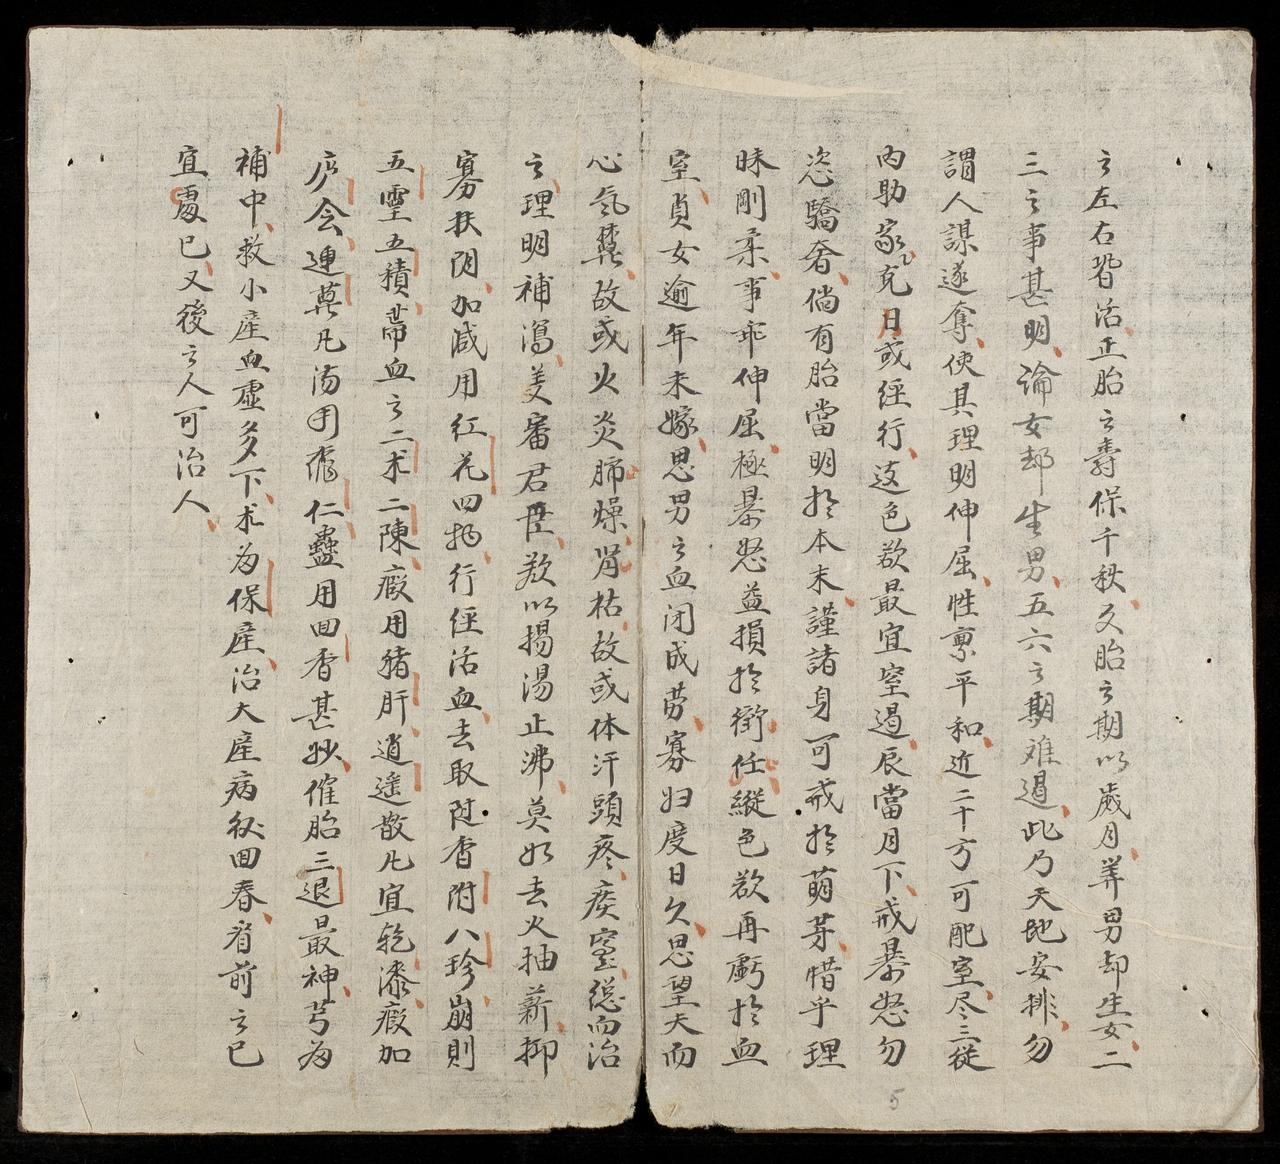 之左右皆活正胎之壽保千秋久胎之期以歲月筭男却生女二
三之事甚明論女却生男五六之期难過此乃天地安排勿
謂人謀遂奪使其理明伸屈性稟平和近二十方可配室尽三從
內助家克日或經行这色欲最宜窒遏辰當月下戒暴怒勿
恣驕奢倘有胎當明於本末謹諸身可戒於萌芽惜乎理
昧剛柔事乖伸屈極暴怒益損於衝任縱色欲再虧於血
室貞女逾年未嫁思男之血闭成劳寡妇度日久思望夫而
心気欝故或火炎肺燥腎枯故或体汗頭疼痰窒總而治
之理明補瀉美審君臣欲以揚湯止沸莫如去火抽薪抑
寡扶阴加减用红花四物行經活血去取陡香附八珍崩則
五霊五積蒂血之二术二陳瘕用猪肝逍遥散凡宜乾漆瘕加
芦会連莫凡汤用桃仁蠱用回香甚妙催胎三退最神芎為
補中救小産血虚多下术為保産治大産病後回春省前之已
宜處已又後之人可治人
5